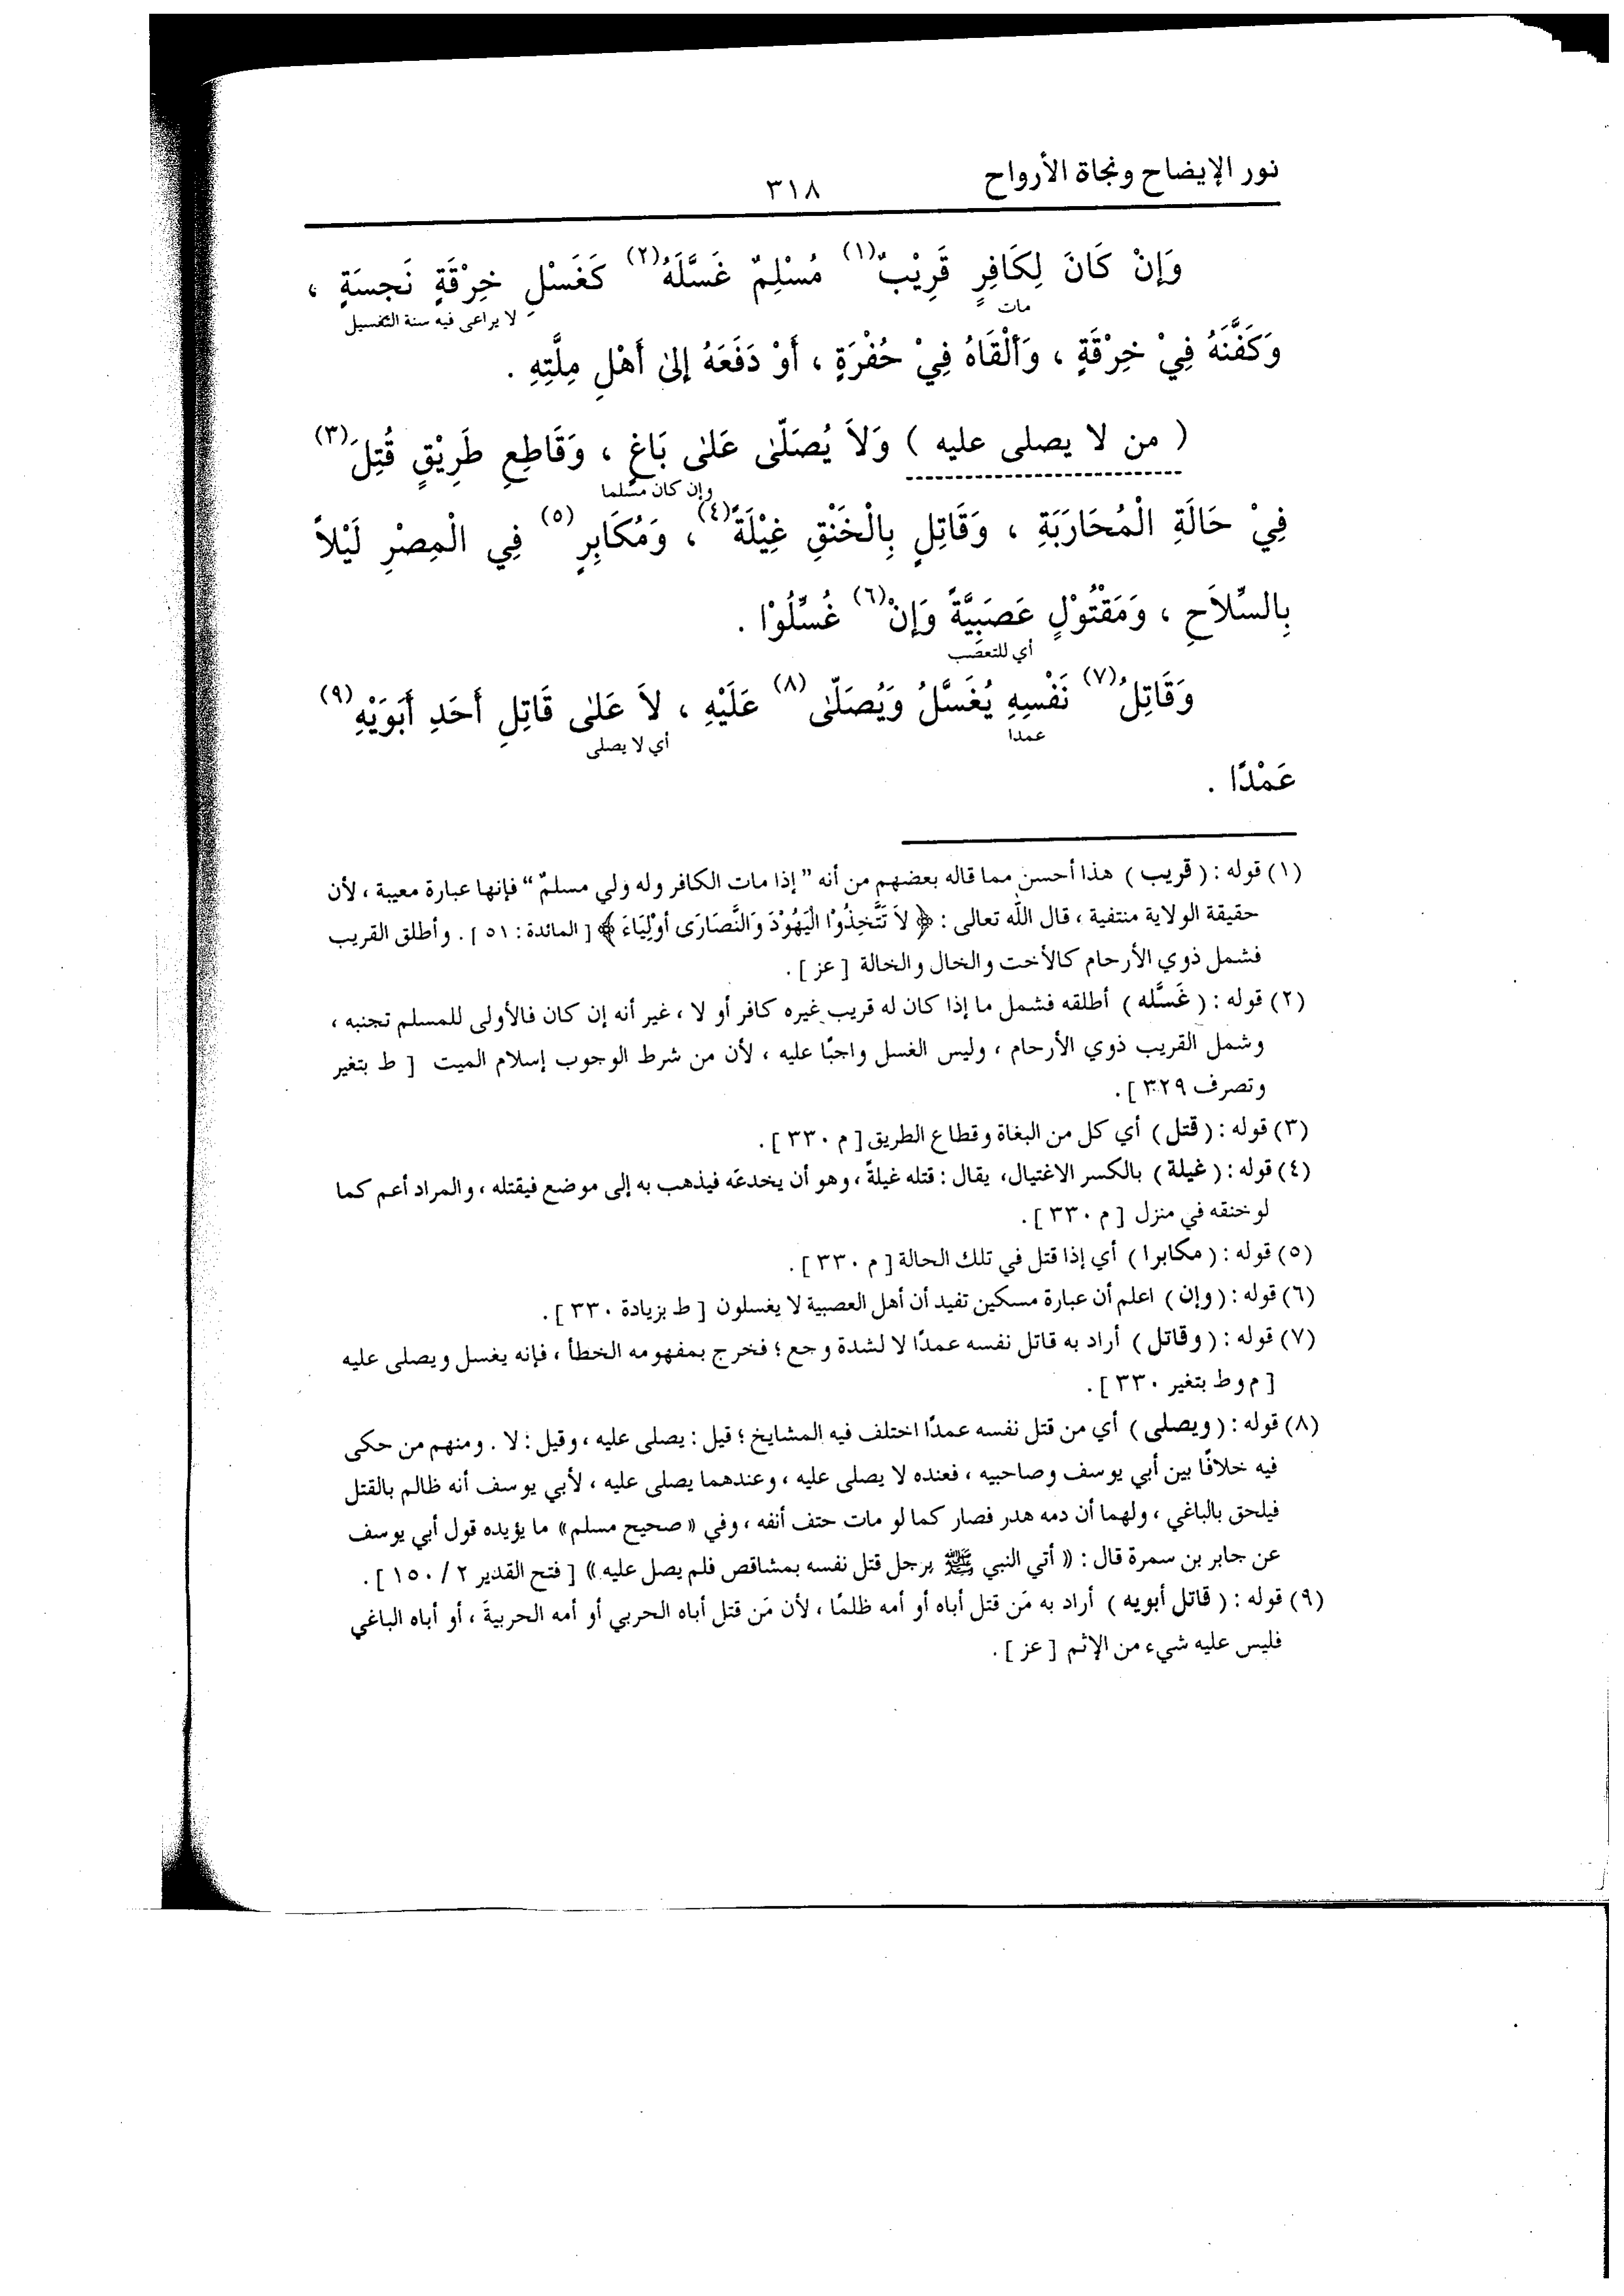 نور الإيضاح ونجاة الأرواح
٣١٨
وَإِنْ كَانَ لِكَافِرٍ قَرِيْبٌ(١) مُسْلِمٌ غَسَّلَهُ(٢) كَغَسْلِ خِرْقَةٍ نَجِسَةٍ ،
مات
لا يراعى فيه سنة التغسيل
وَكَفَّنَهُ فِيْ خِرْقَةٍ ، وَأَلْقَاهُ فِيْ حُفْرَةٍ ، أَوْ دَفَعَهُ إِلىٰ أَهْلِ مِلَّتِهِ .
( من لا يصلى عليه ) وَلاَ يُصَلّىٰ عَلىٰ بَاغٍ ، وَقَاطِعِ طَرِيْقٍ قُتِلَ(٣)
وإن كان مسلما
فِيْ حَالَةِ الْمُحَارَبَةِ ، وَقَاتِلٍ بِالْخَنْقِ غِيْلَةً(٤) ، وَمُكَابِرٍ(٥) فِي الْمِصْرِ لَيْلاً
بِالسِّلاَحِ ، وَمَقْتُوْلٍ عَصَبِيَّةً وَإِنْ(٦) غُسِّلُوْا .
أي للتعصب
وَقَاتِلُ(٧) نَفْسِهِ يُغَسَّلُ وَيُصَلّىٰ(٨) عَلَيْهِ ، لاَ عَلىٰ قَاتِلِ أَحَدِ أَبَوَيْهِ(٩)
عمدا
أي لا يصلى
عَمْدًا .
(١) قوله : ( قريب ) هذا أحسن مما قاله بعضهم من أنه " إذا مات الكافر وله ولي مسلمٌ " فإنها عبارة معيبة ، لأن
حقيقة الولاية منتفية ، قال الله تعالى : ﴿ لاَ تَتَّخِذُوْا الْيَهُوْدَ وَالنَّصَارَى أَوْلِيَاءَ ﴾ [ المائدة : ٥١ ] . وأطلق القريب
فشمل ذوي الأرحام كالأخت والخال والخالة [ عز ] .
(٢) قوله : ( غَسَّله ) أطلقه فشمل ما إذا كان له قريب غيره كافر أو لا ، غير أنه إن كان فالأولى للمسلم تجنبه ،
وشمل القريب ذوي الأرحام ، وليس الغسل واجبًا عليه ، لأن من شرط الوجوب إسلام الميت [ ط بتغير
وتصرف ٣٢٩ ] .
(٣) قوله : ( قتل ) أي كل من البغاة وقطاع الطريق [ م ٣٣٠ ] .
(٤) قوله : ( غيلة ) بالكسر الاغتيال، يقال : قتله غيلةً ، وهو أن يخدعَه فيذهب به إلى موضع فيقتله ، والمراد أعم كما
لو خنقه في منزل [ م ٣٣٠ ] .
(٥) قوله : ( مكابرا ) أي إذا قتل في تلك الحالة [ م ٣٣٠ ] .
(٦) قوله : ( وإن ) اعلم أن عبارة مسكين تفيد أن أهل العصبية لا يغسلون [ ط بزيادة ٣٣٠ ] .
(٧) قوله : ( وقاتل ) أراد به قاتل نفسه عمدًا لا لشدة وجع ؛ فخرج بمفهومه الخطأ ، فإنه يغسل ويصلى عليه
[ م وط بتغير ٣٣٠ ] .
(٨) قوله : ( ويصلى ) أي من قتل نفسه عمدًا اختلف فيه المشايخ ؛ قيل : يصلى عليه ، وقيل : لا . ومنهم من حكى
فيه خلافًا بين أبي يوسف وصاحبيه ، فعنده لا يصلى عليه ، وعندهما يصلى عليه ، لأبي يوسف أنه ظالم بالقتل
فيلحق بالباغي ، ولهما أن دمه هدر فصار كما لو مات حتف أنفه ، وفي « صحيح مسلم » ما يؤيده قول أبي يوسف
عن جابر بن سمرة قال : « أتي النبي ﷺ برجل قتل نفسه بمشاقص فلم يصل عليه » [ فتح القدير ٢ / ١٥٠ ] .
(٩) قوله : ( قاتل أبويه ) أراد به مَن قتل أباه أو أمه ظلمًا ، لأن مَن قتل أباه الحربي أو أمه الحربيةَ ، أو أباه الباغي
فليس عليه شيء من الإثم [ عز ] .